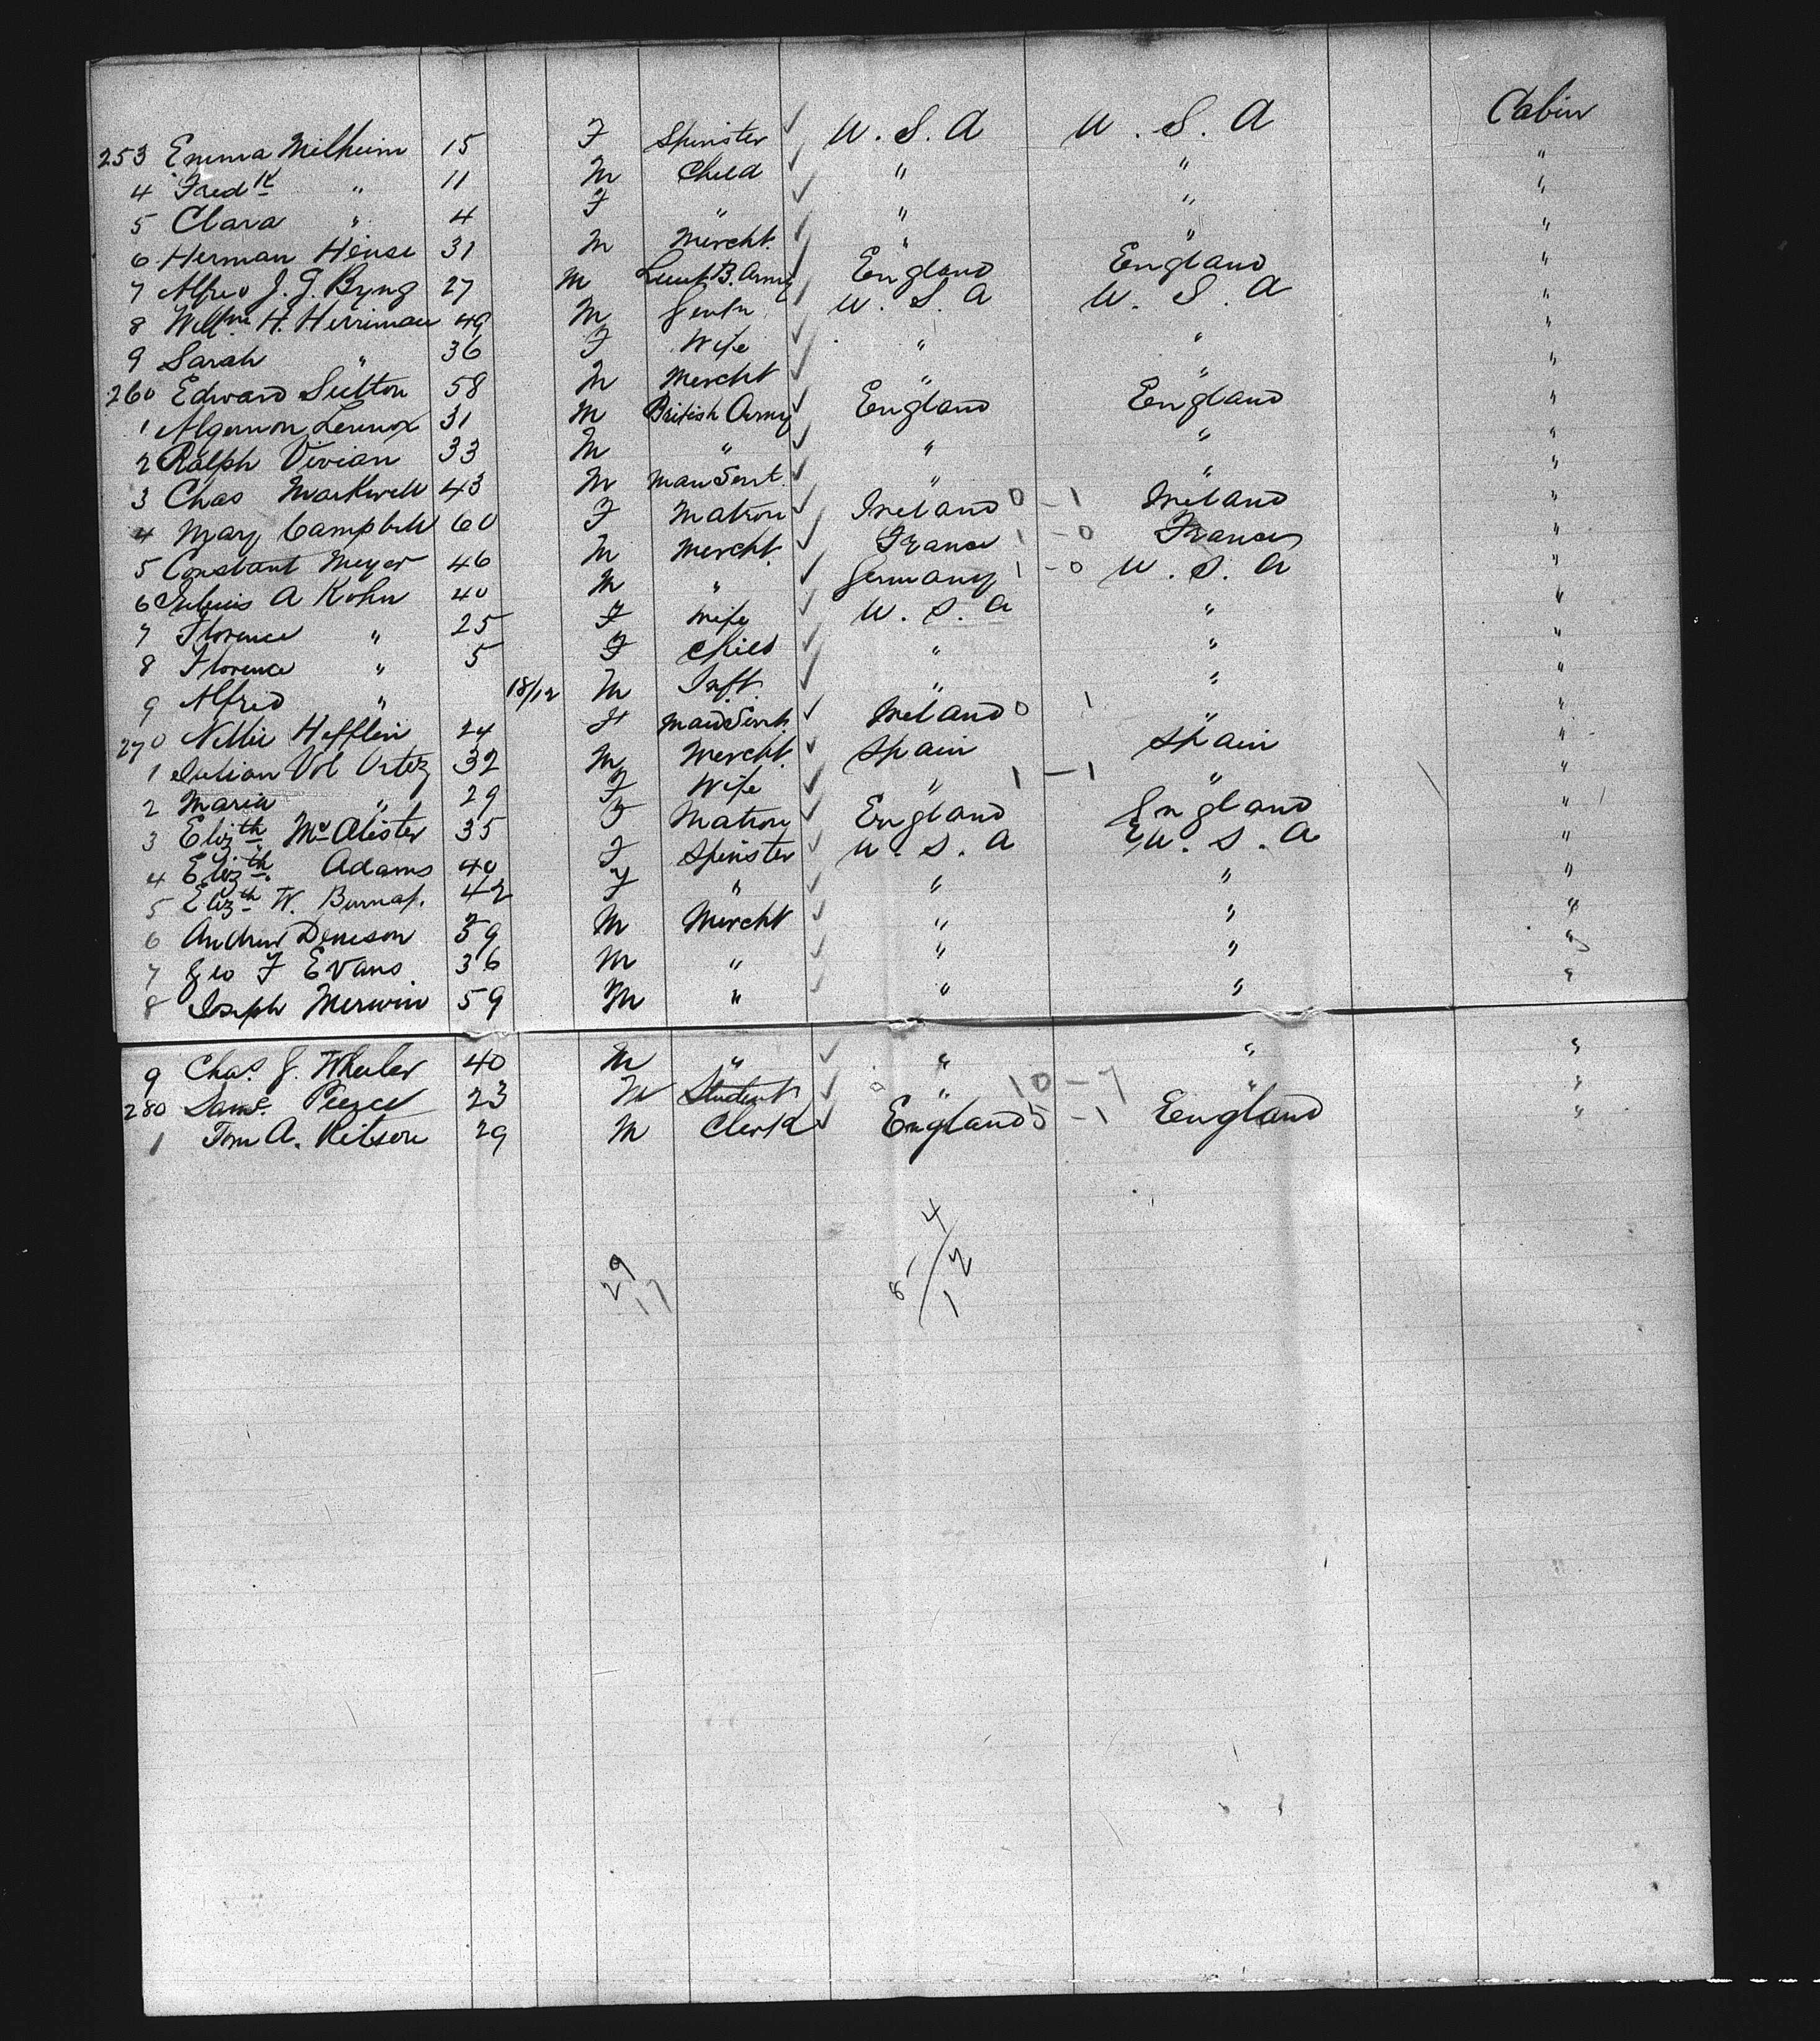 Cabin
253 Emma Milheim 15 F Spinster ✓ U.S.A U.S.A
4 Fredk " 11 M Child ✓ " " "
5 Clara " 4 F " ✓ " " "
6 Herman Heuse 31 M Mercht. ✓ " " "
7 Alfred J. G. Byng 27 M Lieut B. Army ✓ England England "
8 Willm H. Herriman 49 M Gentn ✓ U.S.A U.S.A "
9 Sarah " 36 F Wife ✓ " " "
260 Edward Sutton 58 M Mercht ✓ " " "
1 Algernon Lennox 31 M British Army ✓ England England "
2 Ralph Vivian 33 M " ✓ " " "
3 Chas Markwell 43 M Man Servt. ✓ " " "
4 Mary Campbell 60 F Matron ✓ Ireland 0 - 1 Ireland "
5 Constant Meyer 46 M Mercht. ✓ France 1 - 0 France "
6 Julius A Kohn 40 M " ✓ Germany 1 - 0 U.S.A "
7 Florence " 25 F Wife ✓ U.S.A " "
8 Florence " 5 F Child ✓ " " "
9 Alfred " 18/12 M Inft. ✓ " " "
270 Nellie Hefflin 24 F Maid Servt ✓ Ireland 0 1 " "
1 Julian Vol Ortez 32 M Mercht. ✓ Spain Spain "
2 Maria " 29 F Wife ✓ " 1 - 1 " "
3 Elizth McAlister 35 F Matron ✓ England England "
4 Elizth. Adams 40 F Spinster ✓ U.S.A U.S.A "
5 Elizth W. Burnap. 42 F " ✓ " " "
6 Andrew Denison 59 M Mercht ✓ " " "
7 Geo F Evans 36 M " ✓ " " "
8 Joseph Merwin 59 M " ✓ " " "
9 Chas. J. Wheeler 40 M " ✓ " " "
280 Peezee 23 M Student ✓ " 10 - 7 " "
1 Tom A. Kitson 29 M Clerk ✓ England 5 - 1 England "
4
9 2
2 17 8 1